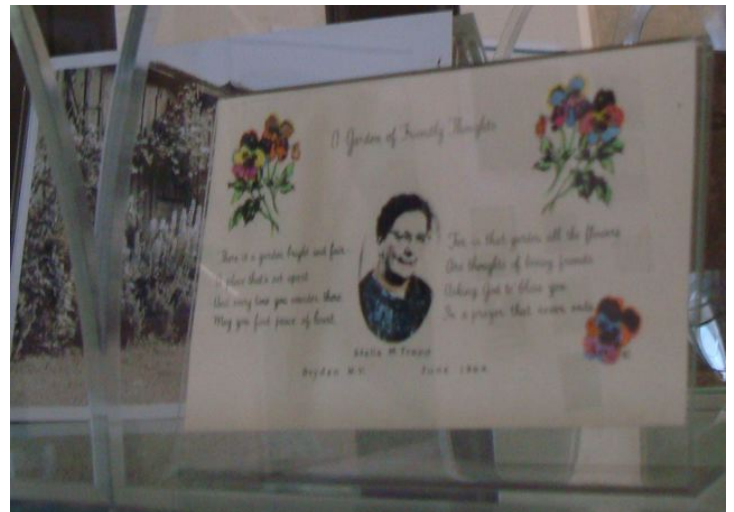 A Garden of Friendly Thoughts
There is a garden bright and fair
A place that's set apart
And every time you wander there
May you find peace of heart.
For in that garden all the flowers
Are thoughts of loving friends
Asking God to bless you
In a prayer that never ends
Stella M
June